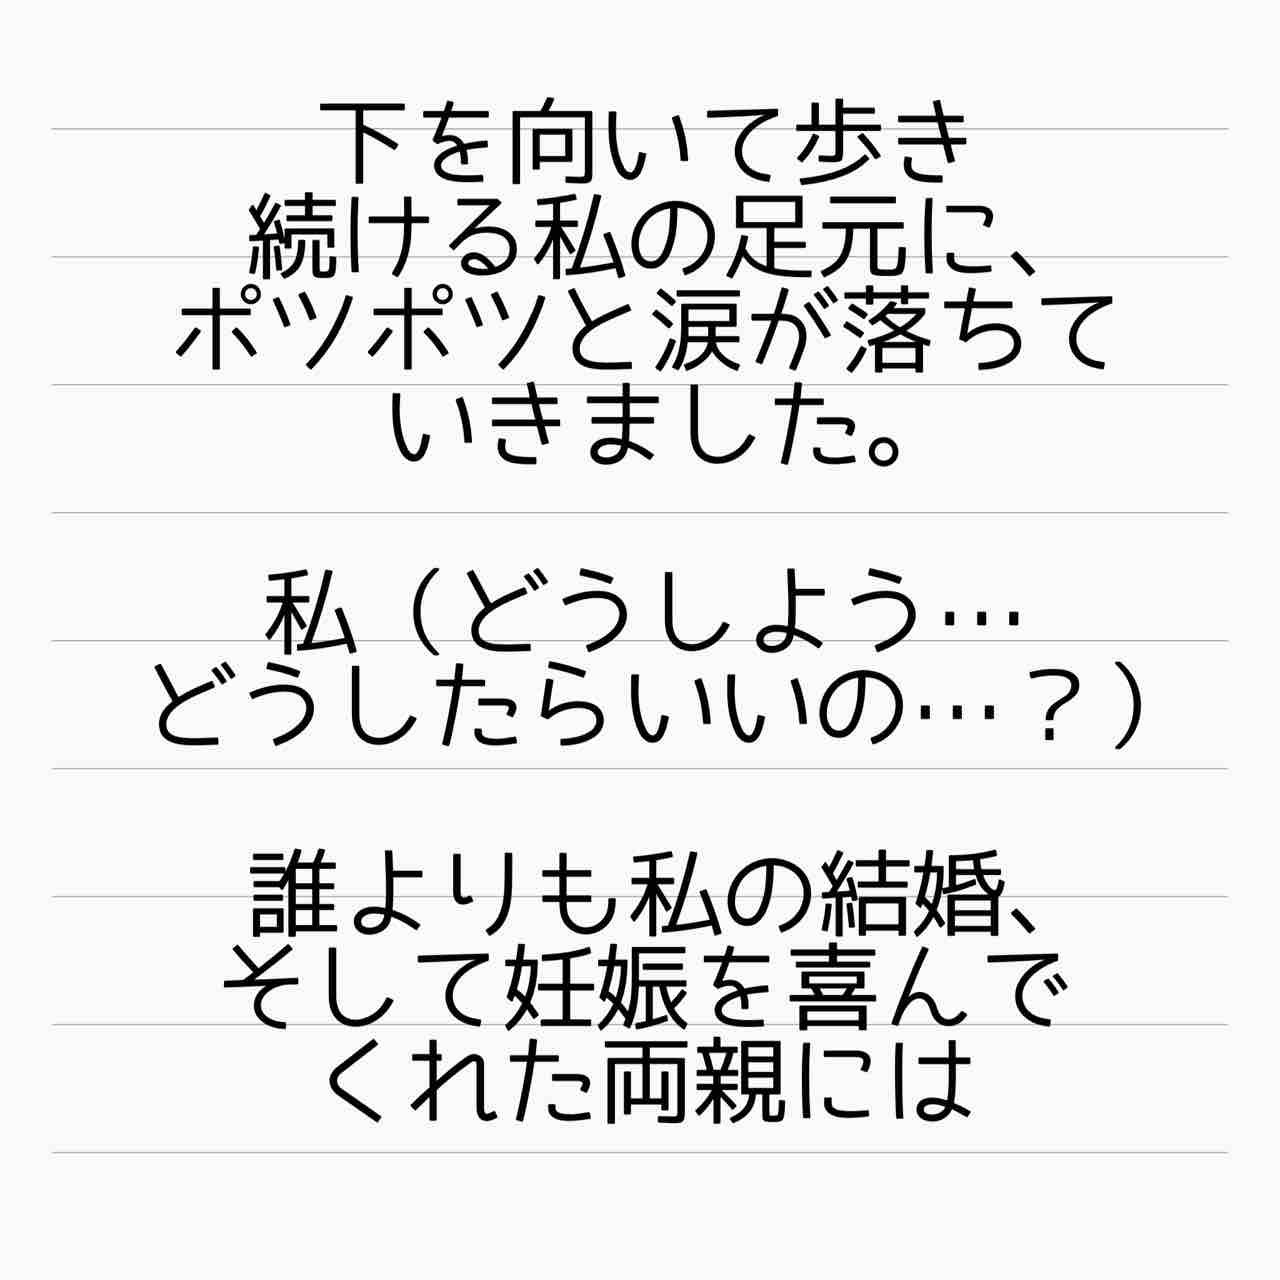 下を向いて歩き
続ける私の足元に、
ポツポツと涙が落ちて
いきました。
私（どうしよう…
どうしたらいいの…？）
誰よりも私の結婚、
そして妊娠を喜んで
くれた両親には